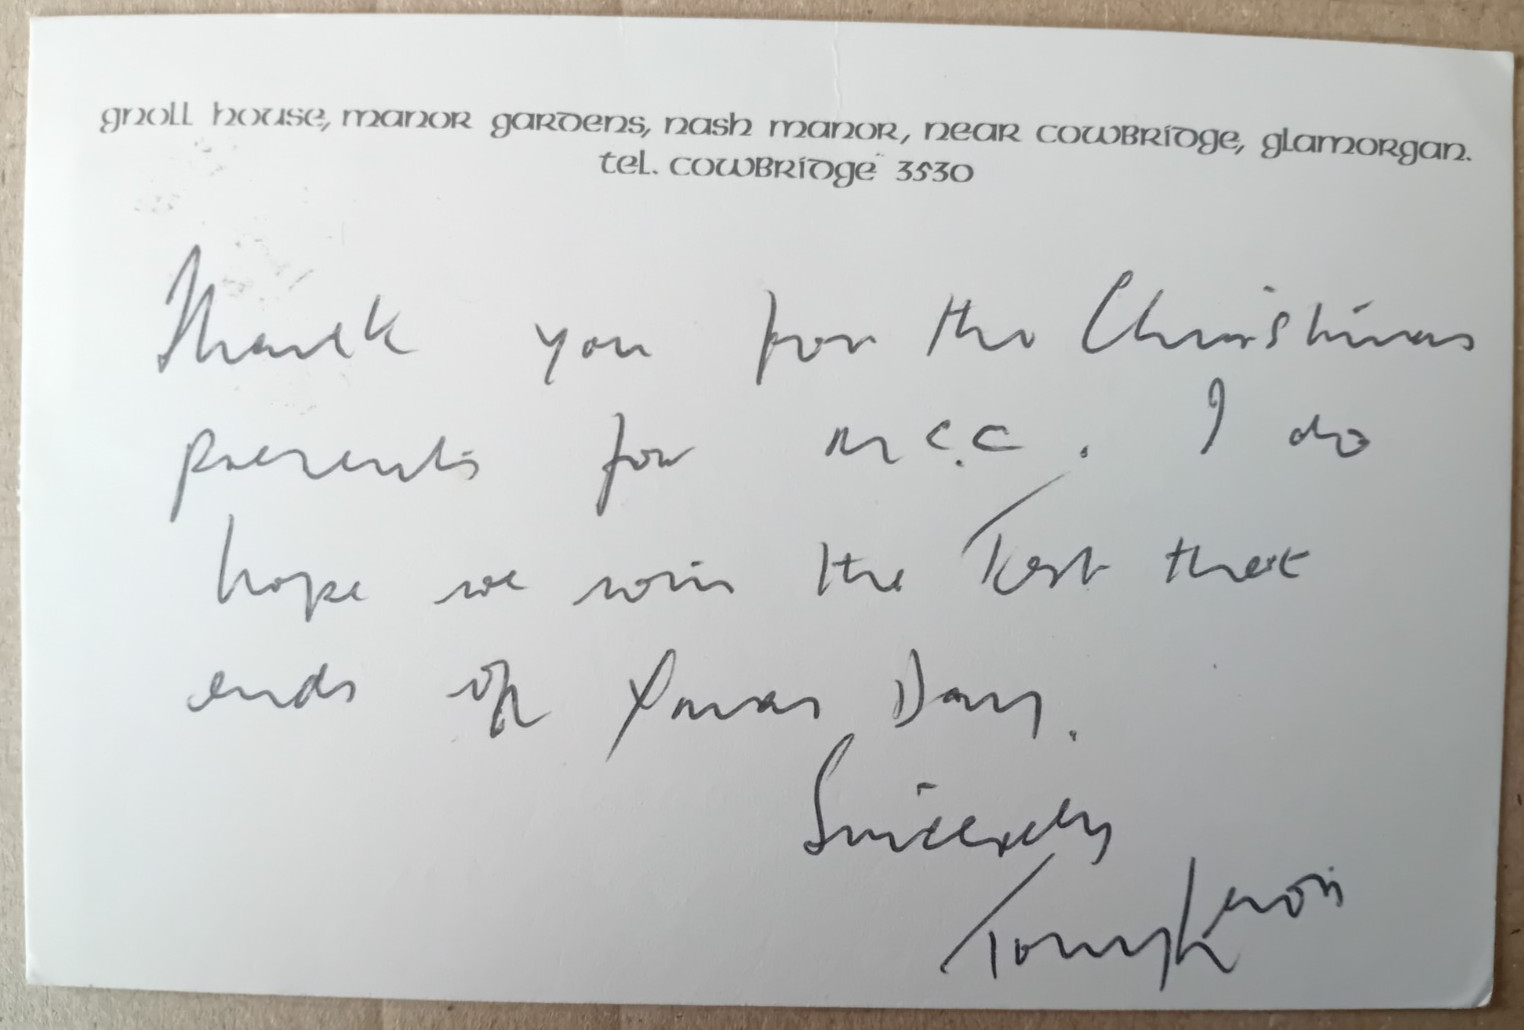 gnoll house, manor gardens, nash manor, near cowbridge, glamorgan.
tel. cowbridge 3530
Thank you for the Christmas
presents for MCC. I do
hope we win the Test that
ends on Xmas Day.
Sincerely
Tony Lewis